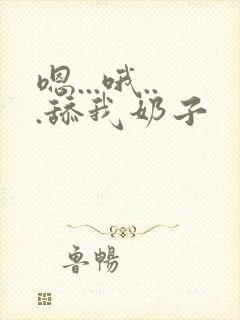 嗯...哦..
.舔我奶子
鲁暢